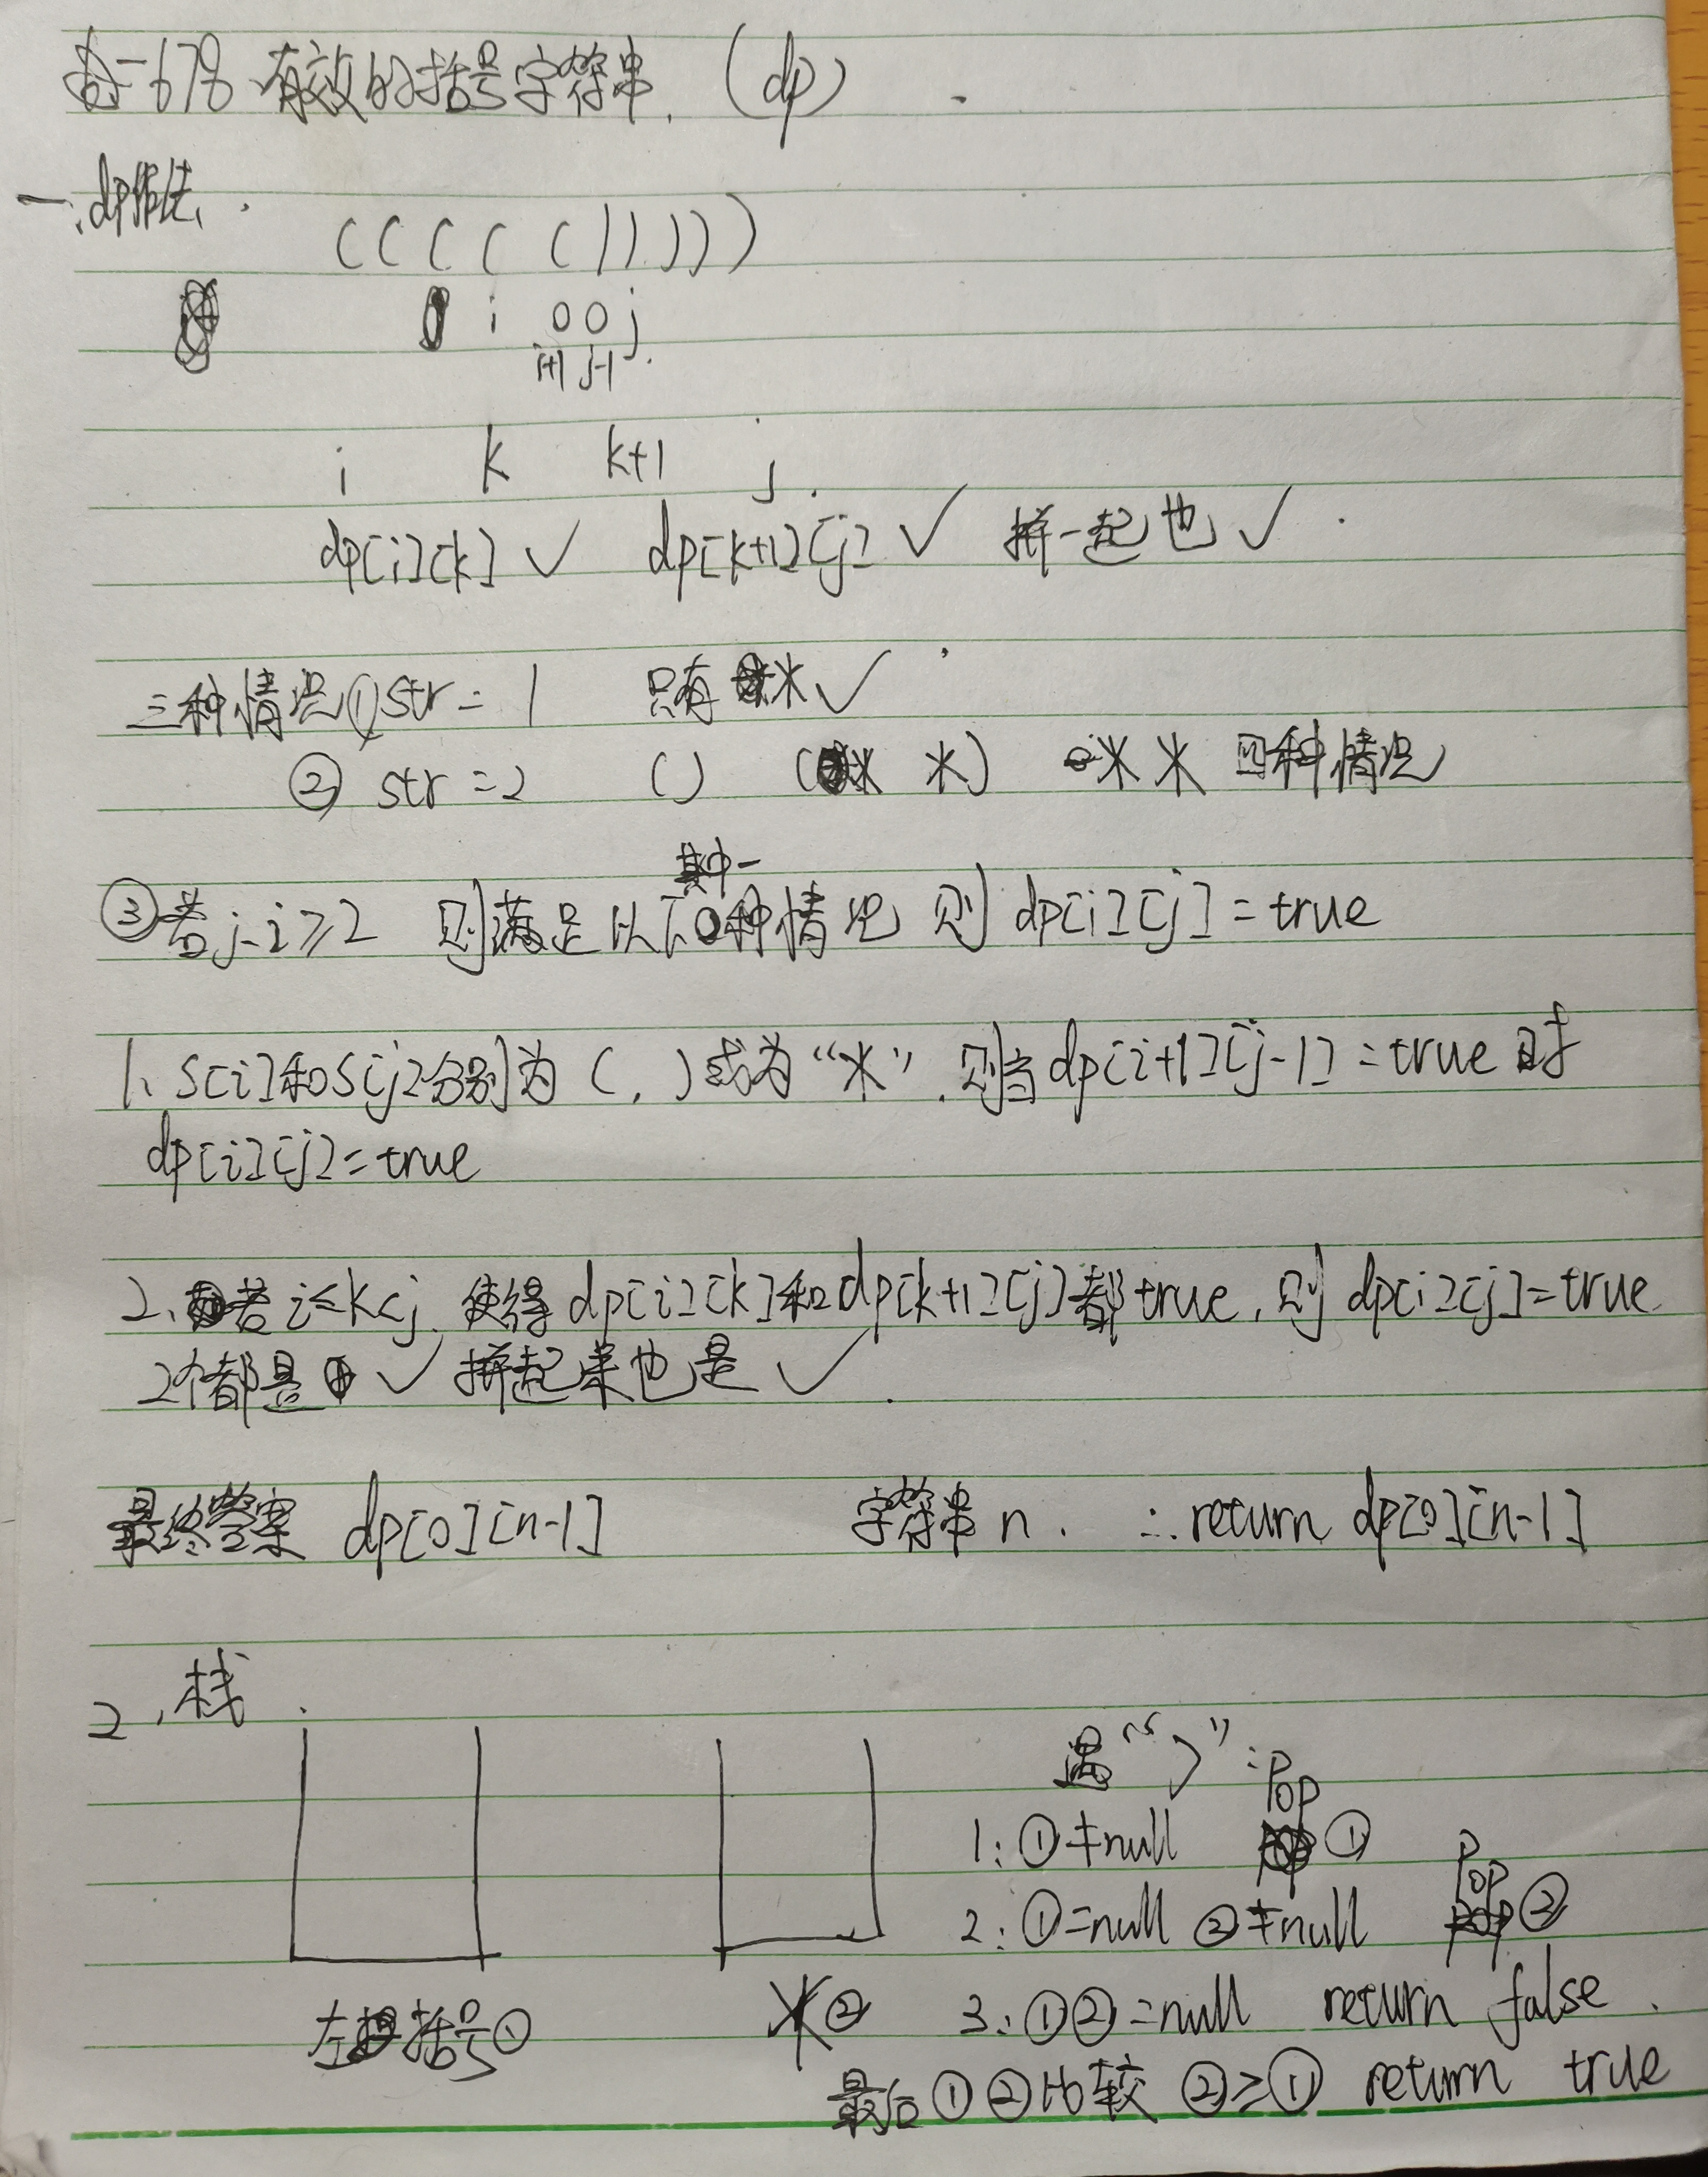 每一678 有效的括号字符串. (dp)
一.dp做法.
( ( ( ( ( ) ) ) ) )
i 0 0 j
i+1 j-1
i k k+1 j
dp[i][k] ✓ dp[k+1][j] ✓ 拼一起也 ✓
三种情况 ① str = 1 只有 * ✓
② str = 2 () (* *) ** 四种情况
其中一
③ 若 j-i ≥ 2 则满足以下种情况 则 dp[i][j] = true
1、s[i]和s[j]分别为 (, ) 或为 “*”. 则当 dp[i+1][j-1] = true 时
dp[i][j] = true
2、若 i≤k<j, 使得 dp[i][k]和dp[k+1][j]都true, 则 dp[i][j]=true
2个都是 ✓ 拼起来也是 ✓
最终答案 dp[0][n-1] 字符串 n. ∴return dp[0][n-1]
2、栈
遇“)”:
1: ①≠null pop ①
2: ①=null ②≠null pop ②
左括号① *② 3: ①②=null return false.
最后①②比较 ②≥① return true